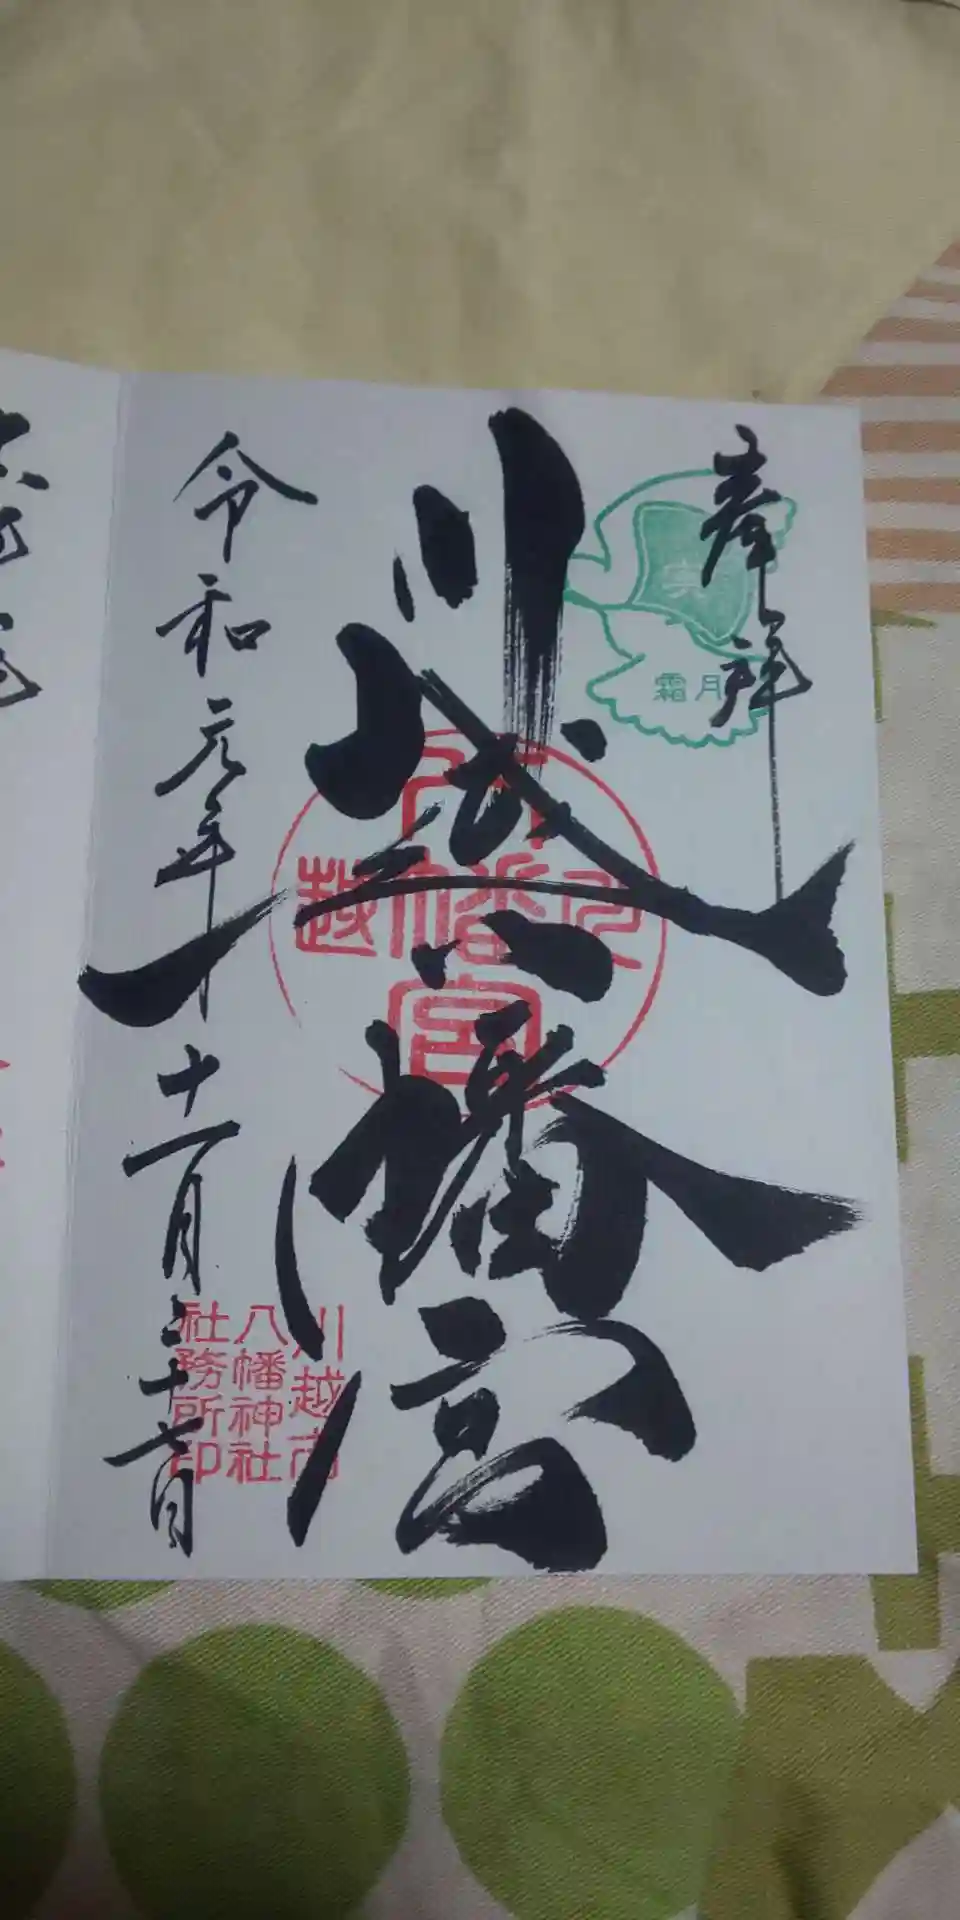 奉拝
霜月
川越八幡宮
川
越
八幡宮
川越市
八幡神社
社務所印
令和元年十一月二十七日